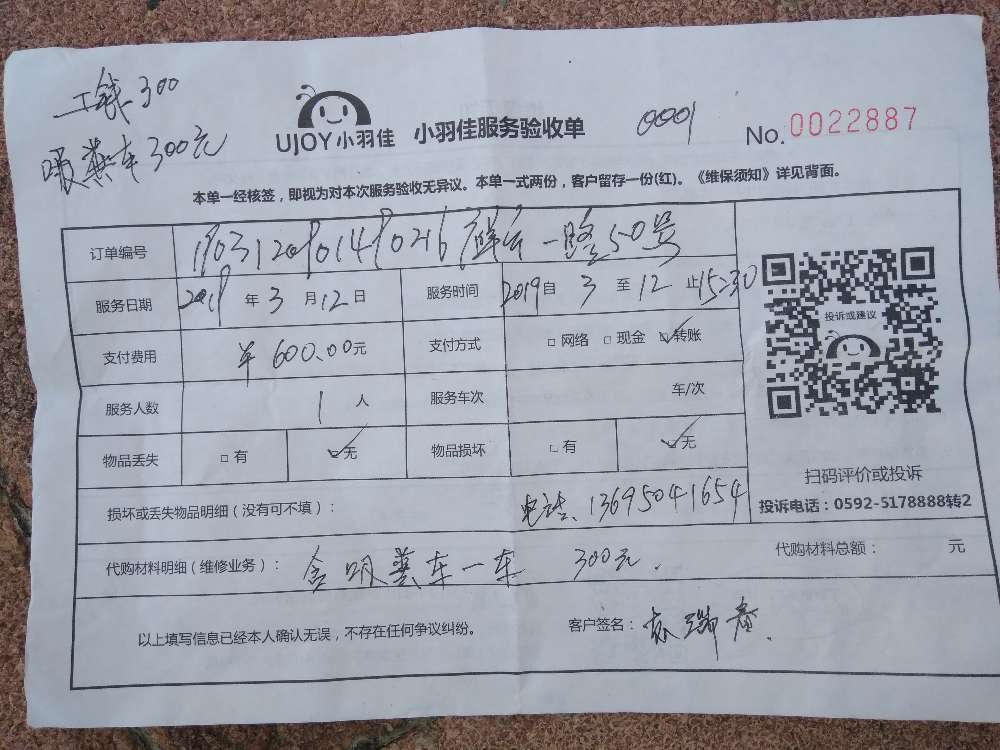 工钱300
吸粪车300元
UJOY小羽佳 小羽佳服务验收单 0001 No.0022887
本单一经核签，即视为对本次服务验收无异议。本单一式两份，客户留存一份(红)。《维保须知》详见背面。
订单编号 一路50号
服务日期 2019年3月12日 服务时间 2019自3至12止15:30
支付费用 ￥600.00元 支付方式 □网络 □现金 ☑转账
服务人数 1人 服务车次 车/次
物品丢失 □有 ☑无 物品损坏 □有 ☑无
投诉或建议
扫码评价或投诉
投诉电话：0592-5178888转2
损坏或丢失物品明细（没有可不填）： 电话、13695041654
代购材料明细（维修业务）： 含吸粪车一车 300元. 代购材料总额： 元
以上填写信息已经本人确认无误，不存在任何争议纠纷。 客户签名：